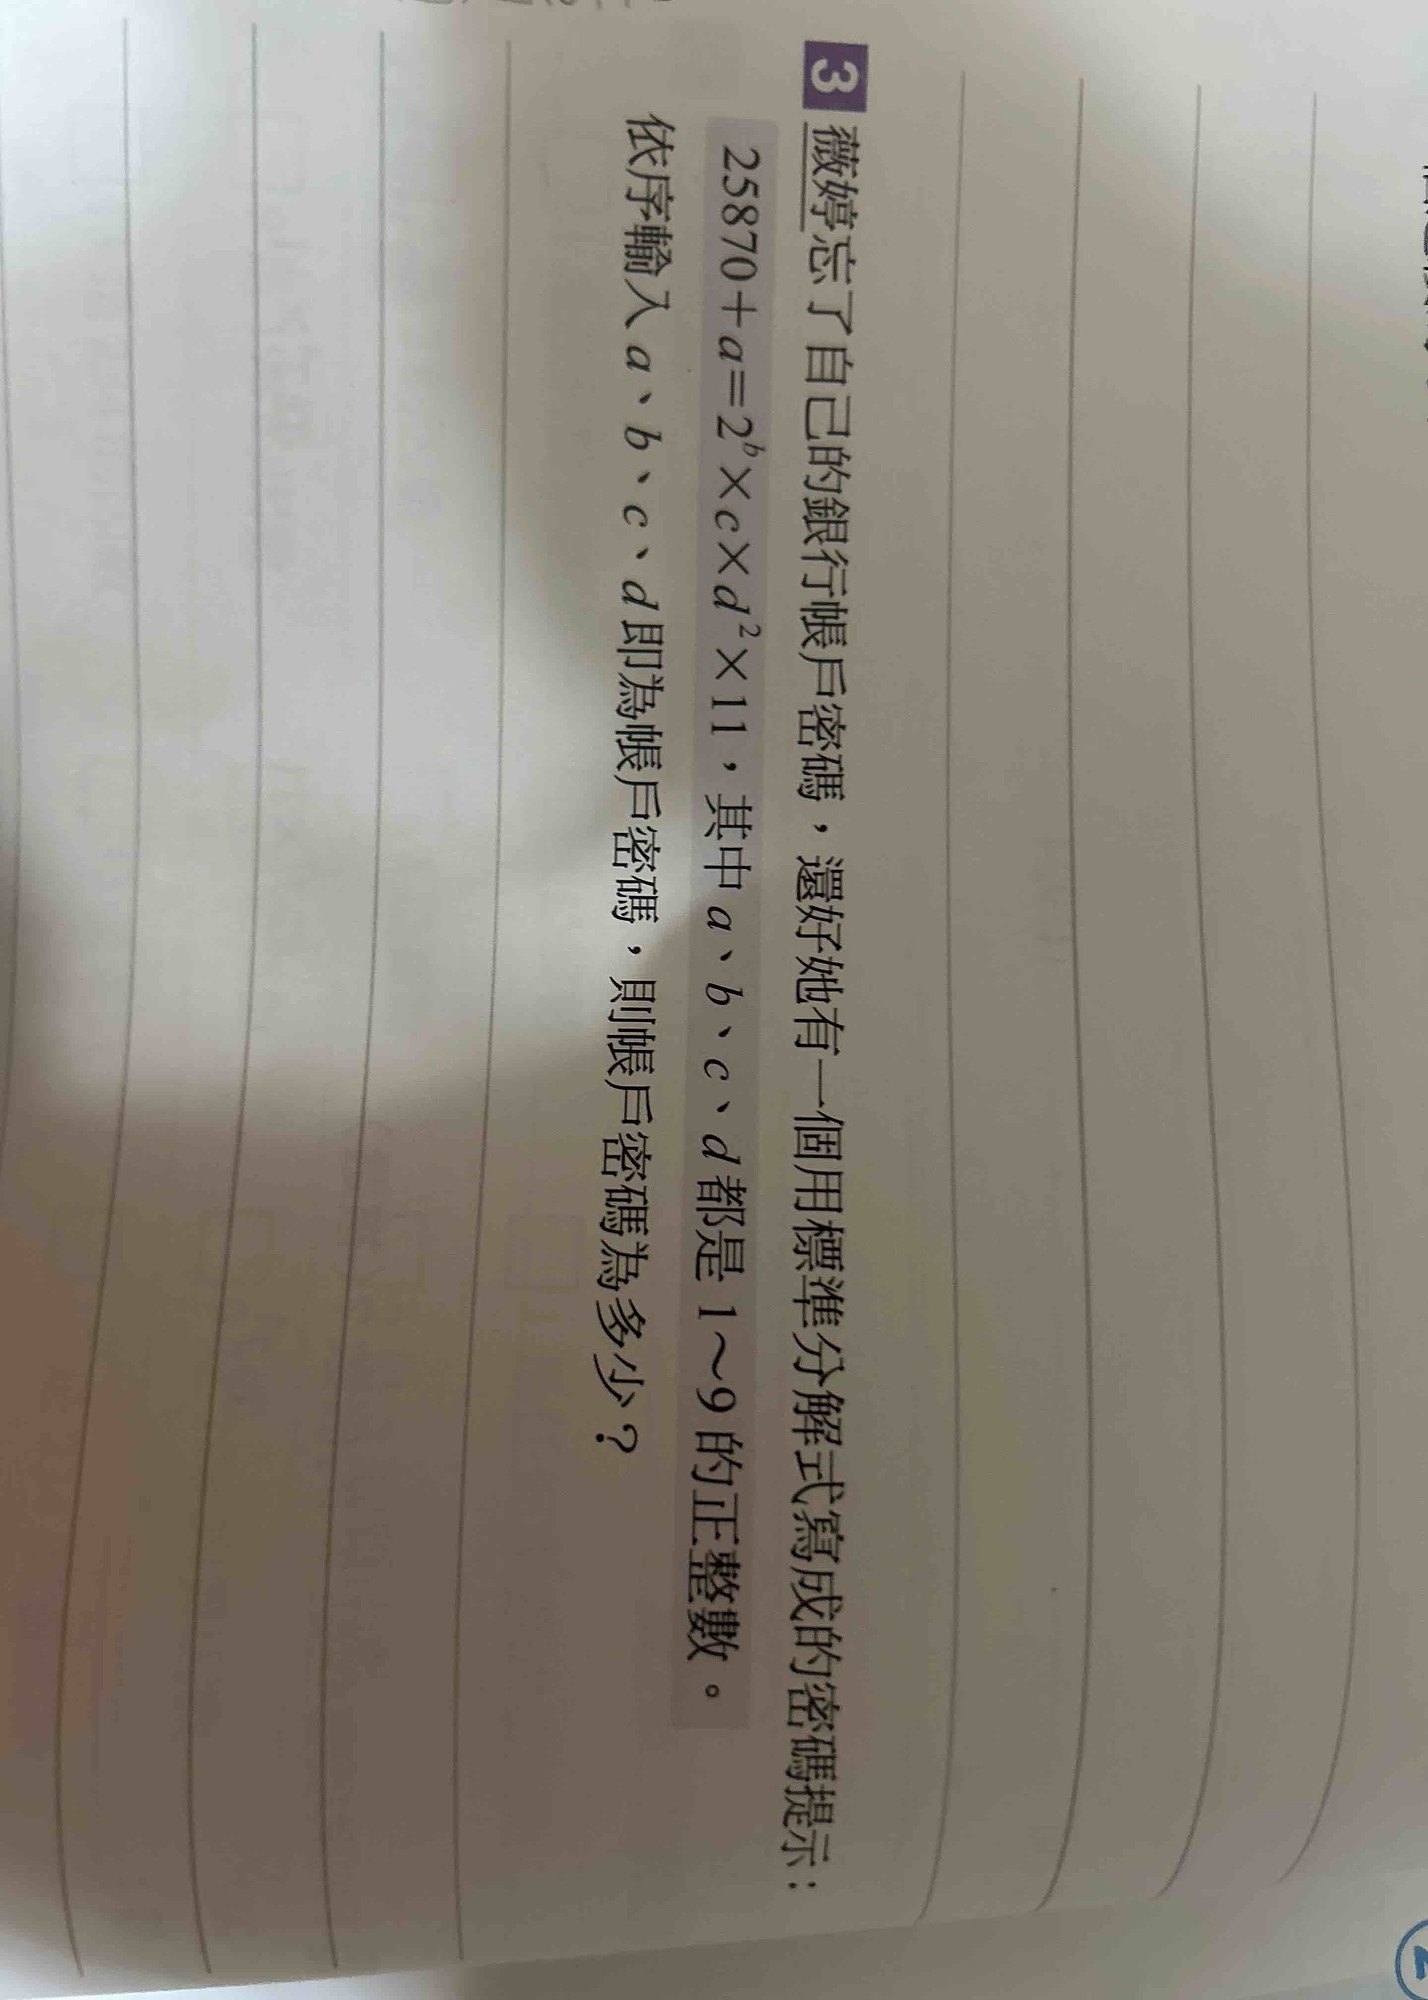 3 薇婷忘了自己的銀行帳戶密碼，還好她有一個用標準分解式寫成的密碼提示：
25870＋a＝2ᵇ×c×d²×11，其中 a、b、c、d 都是 1～9 的正整數。
依序輸入 a、b、c、d 即為帳戶密碼，則帳戶密碼為多少？
2